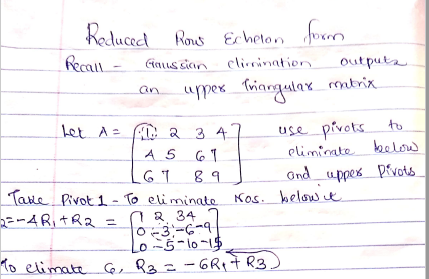 Reduced Row Echelon form
Recall - Gaussian elimination outputs
an upper Triangular matrix
Let A = [1 2 3 4 use pivots to
4 5 6 7 eliminate below
6 7 8 9] and upper pivots
Take Pivot 1 - To eliminate Nos. below it
2=-4R1+R2 = [1 2 3 4
0 -3 -6 -9
0 -5 -10 -15]
To elimate 6, R3 = -6R1+R3